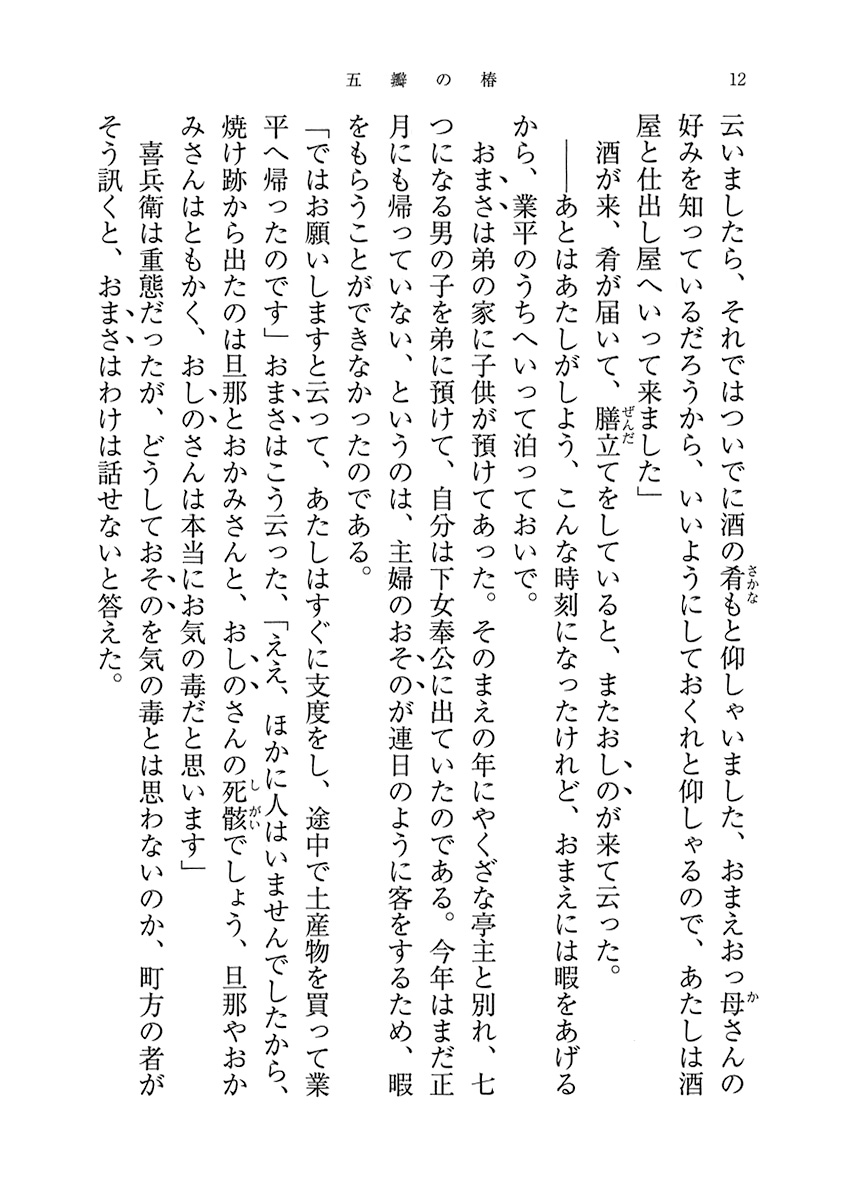 五瓣の椿
12
云いましたら、それではついでに酒の肴もと仰しゃいました、おまえおっ母さんの
好みを知っているだろうから、いいようにしておくれと仰しゃるので、あたしは酒
屋と仕出し屋へいって来ました」
酒が来、肴が届いて、膳立てをしていると、またおしのが来て云った。
――あとはあたしがしよう、こんな時刻になったけれど、おまえには暇をあげる
から、業平のうちへいって泊っておいで。
おまさは弟の家に子供が預けてあった。そのまえの年にやくざな亭主と別れ、七
つになる男の子を弟に預けて、自分は下女奉公に出ていたのである。今年はまだ正
月にも帰っていない、というのは、主婦のおそのが連日のように客をするため、暇
をもらうことができなかったのである。
「ではお願いしますと云って、あたしはすぐに支度をし、途中で土産物を買って業
平へ帰ったのです」おまさはこう云った、「ええ、ほかに人はいませんでしたから、
焼け跡から出たのは旦那とおかみさんと、おしのさんの死骸でしょう、旦那やおか
みさんはともかく、おしのさんは本当にお気の毒だと思います」
喜兵衛は重態だったが、どうしておそのを気の毒とは思わないのか、町方の者が
そう訊くと、おまさはわけは話せないと答えた。
さかな
か
ぜんだ
しがい